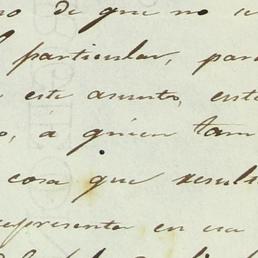 no de que no se
particular, para
este asunto, este
o, á quien tam
cosa que resul
representa en esa